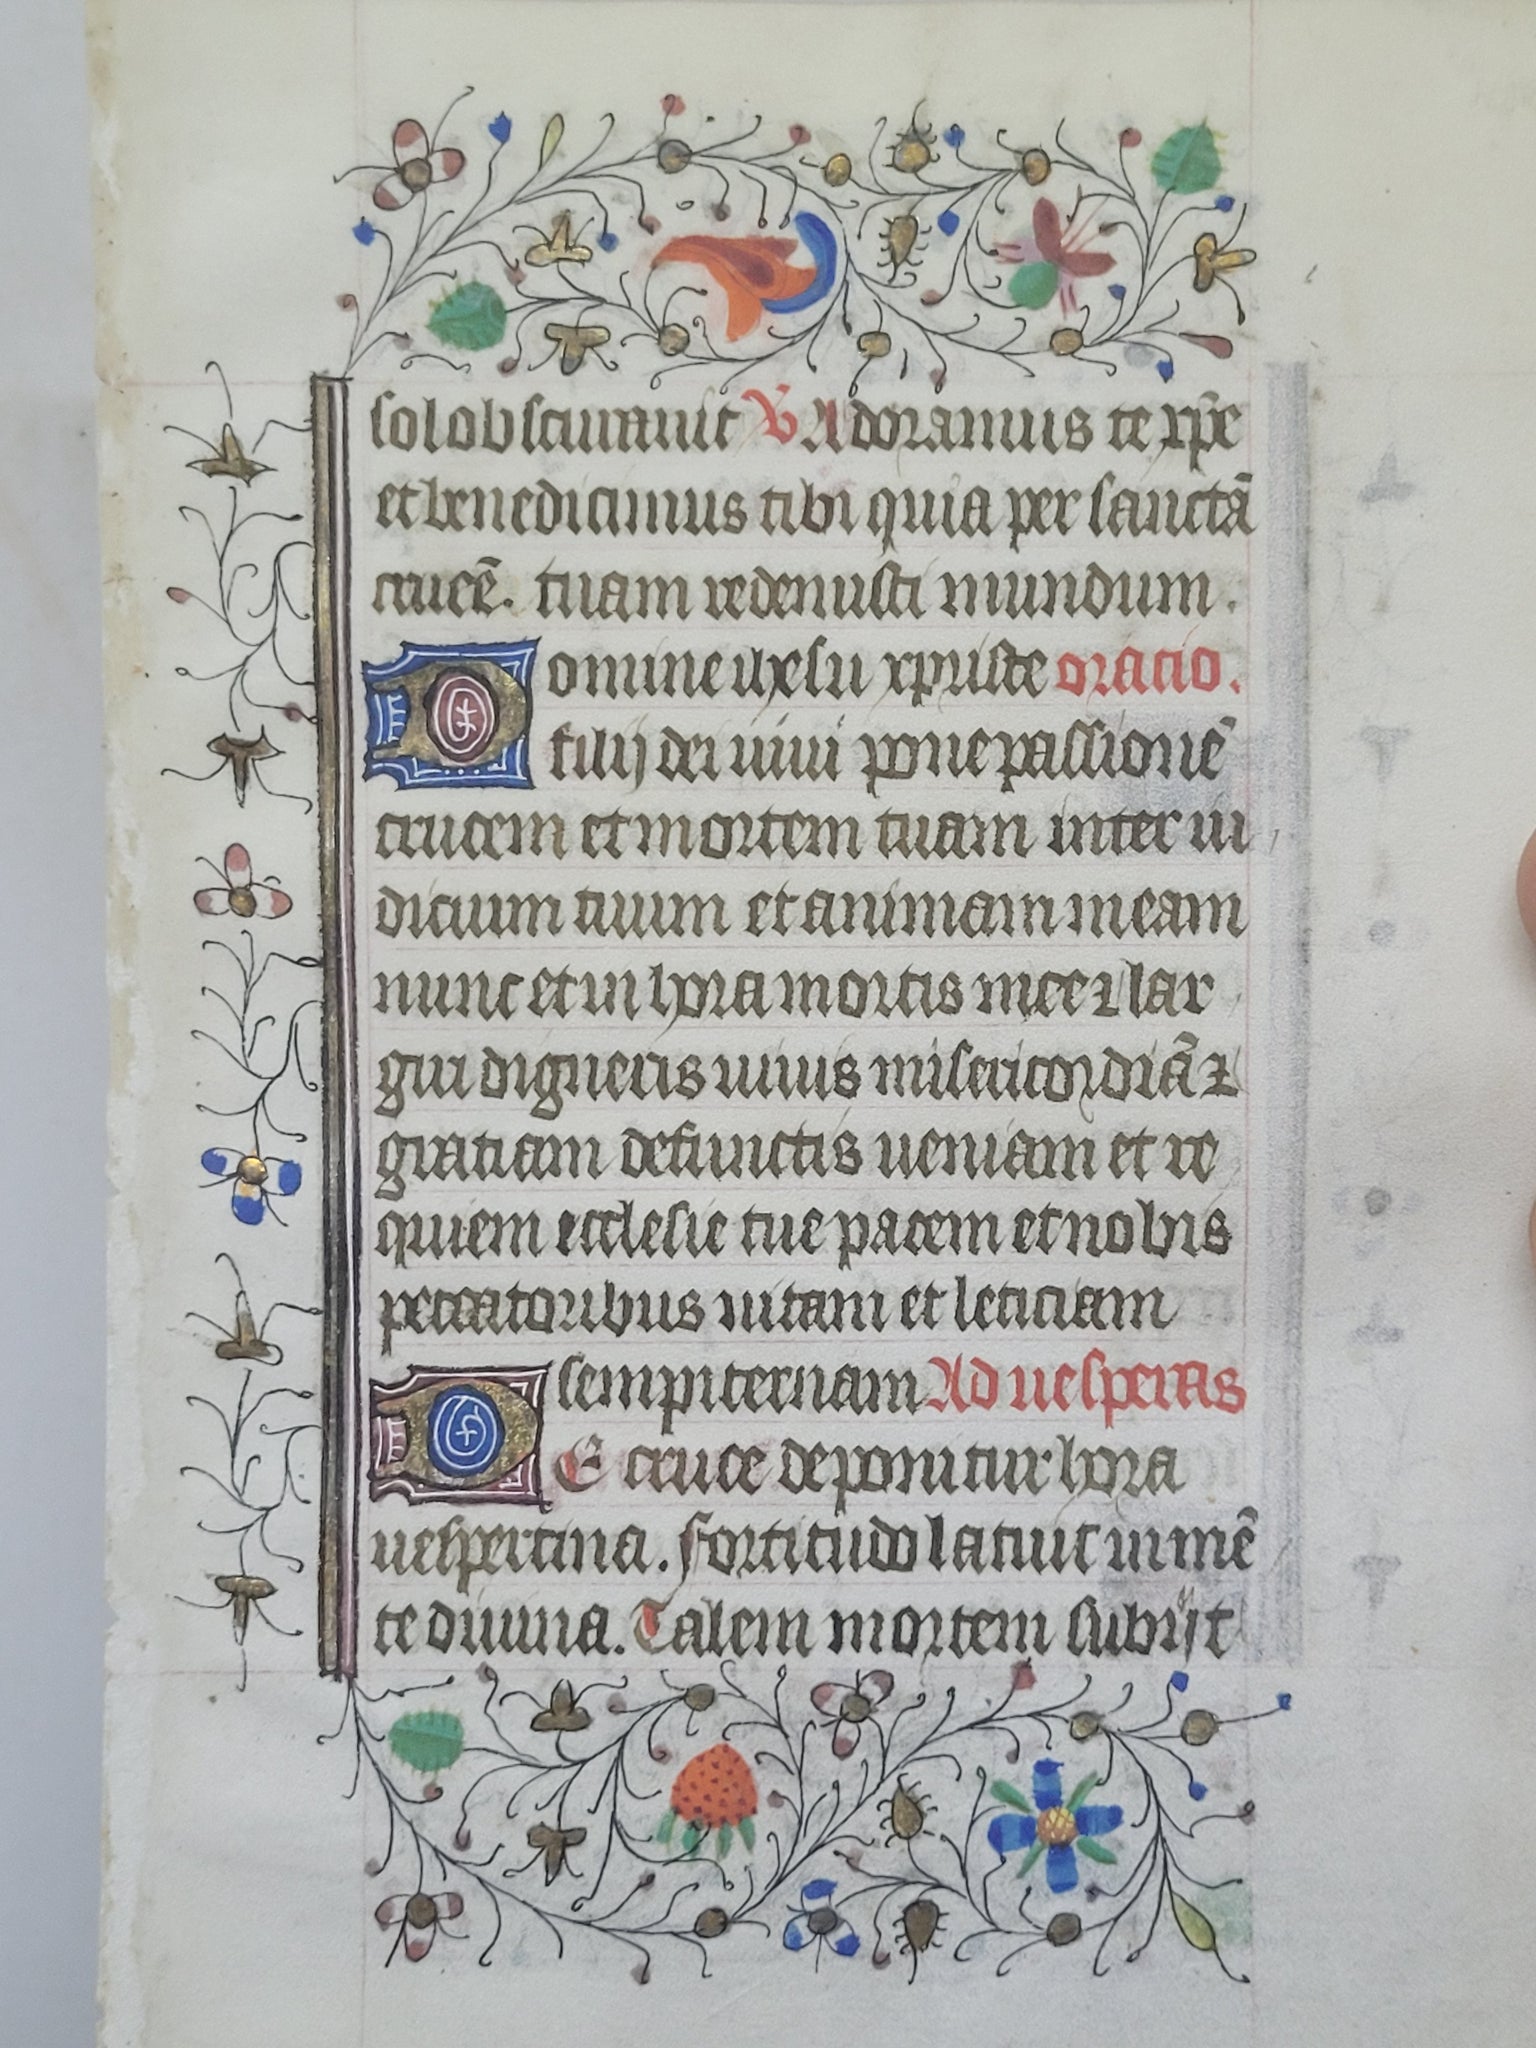 sol obscuravit V Adoramus te xpe
et benedicimus tibi quia per sanctā
crucē. tuam redemisti mundum.
Domine ihesu xpriste oracio.
filij dei uiui pone passionē
crucem et mortem tuam inter iu
dicium tuum et animam meam
nunc et in hora mortis mee ⁊ lar
giri digneris uiuis misericordiā ⁊
gratiam defunctis ueniam et re
quiem ecclesie tue pacem et nobis
peccatoribus uitam et leticiam
sempiternam Ad uesperas
DE cruce deponitur hora
uespertina. fortitudo latuit in mē
te diuina. Talem mortem subijt